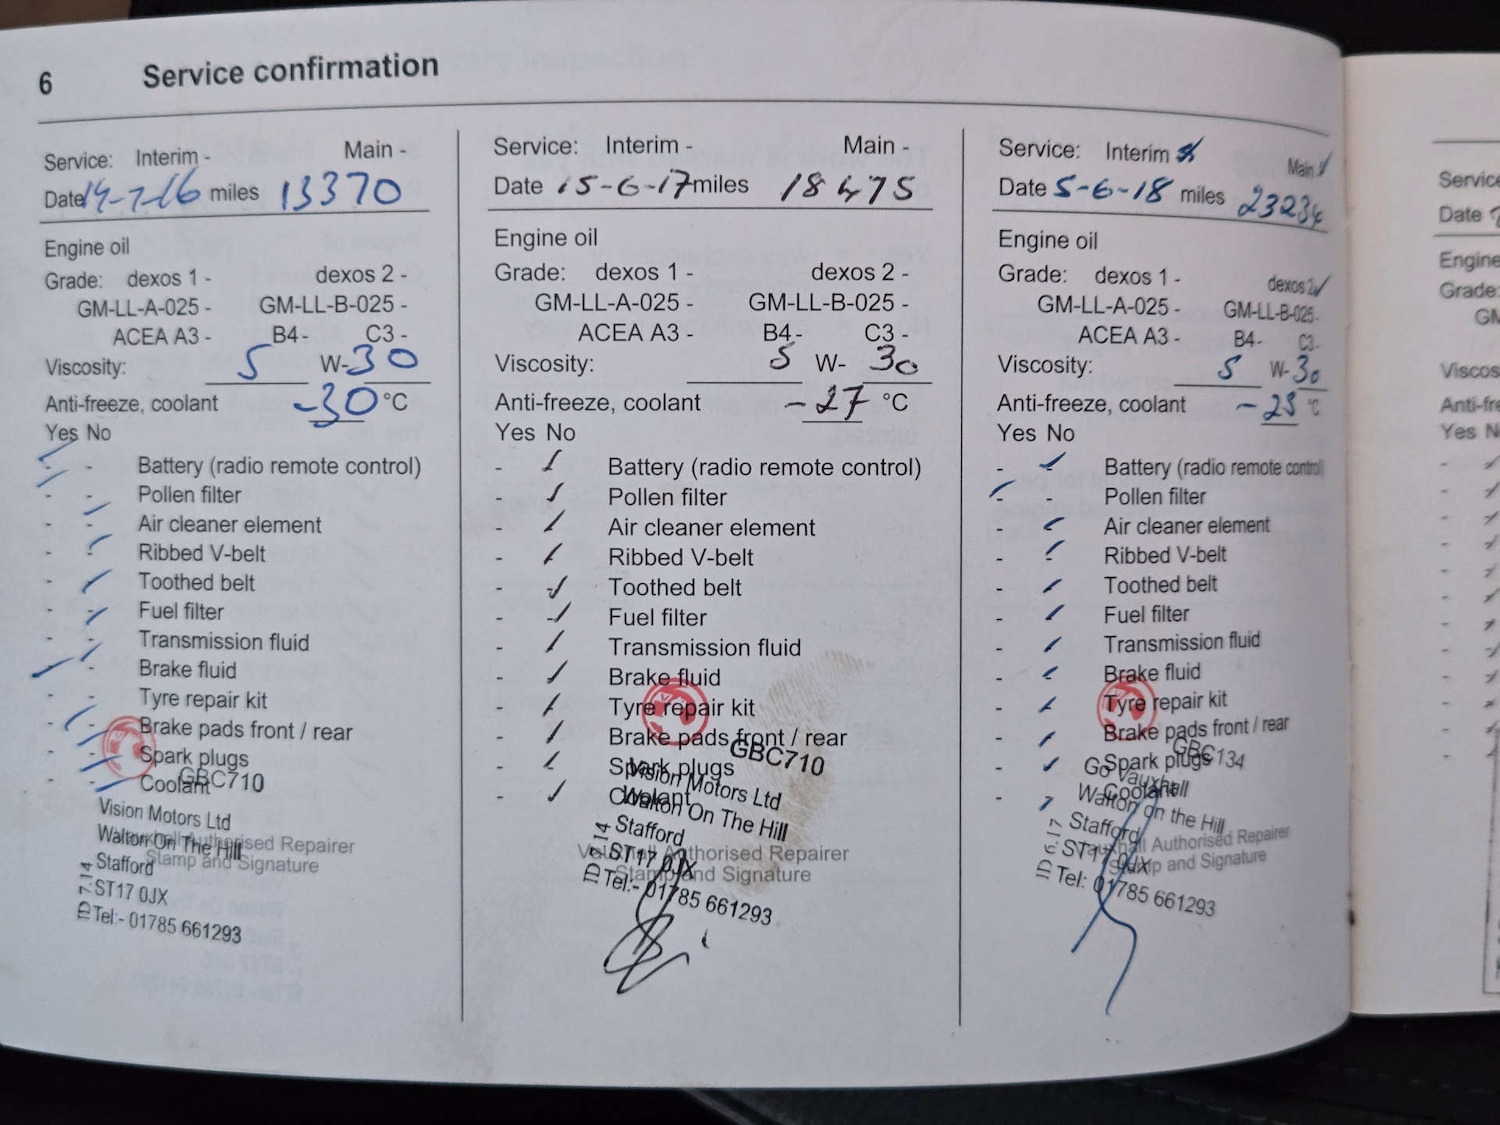 6 Service confirmation
Service: Interim - Main -
Date 14-7-16 miles 13370
Engine oil
Grade: dexos 1 - dexos 2 -
GM-LL-A-025 - GM-LL-B-025 -
ACEA A3 - B4 - C3 -
Viscosity: 5 W-30
Anti-freeze, coolant -30 °C
Yes No
- Battery (radio remote control)
- - Pollen filter
- - Air cleaner element
- - Ribbed V-belt
- - Toothed belt
- - Fuel filter
- - Transmission fluid
- - Brake fluid
- - Tyre repair kit
- - Brake pads front / rear
- - Spark plugs
- - Coolant
GBC710
Vision Motors Ltd
Walton On The Hill
Stafford
ST17 0JX
Tel:- 01785 661293
ID 7 14
Vauxhall Authorised Repairer
Stamp and Signature
Service: Interim - Main -
Date 15-6-17 miles 18475
Engine oil
Grade: dexos 1 - dexos 2 -
GM-LL-A-025 - GM-LL-B-025 -
ACEA A3 - B4 - C3 -
Viscosity: 5 W- 30
Anti-freeze, coolant -27 °C
Yes No
- ✓ Battery (radio remote control)
- ✓ Pollen filter
- ✓ Air cleaner element
- ✓ Ribbed V-belt
- ✓ Toothed belt
- ✓ Fuel filter
- ✓ Transmission fluid
- ✓ Brake fluid
- ✓ Tyre repair kit
- ✓ Brake pads front / rear
- ✓ Spark plugs
- ✓ Coolant
GBC710
Vision Motors Ltd
Walton On The Hill
Stafford
ST17 0JX
Tel:- 01785 661293
Vauxhall Authorised Repairer
Stamp and Signature
Service: Interim Main ✓
Date 5-6-18 miles 23234
Engine oil
Grade: dexos 1 - dexos 2 ✓
GM-LL-A-025 - GM-LL-B-025 -
ACEA A3 - B4- C3-
Viscosity: 5 W-30
Anti-freeze, coolant °C
Yes No
- ✓ Battery (radio remote control)
✓ - Pollen filter
- ✓ Air cleaner element
- ✓ Ribbed V-belt
- ✓ Toothed belt
- ✓ Fuel filter
- ✓ Transmission fluid
- ✓ Brake fluid
- ✓ Tyre repair kit
- ✓ Brake pads front / rear
- ✓ Spark plugs
- ✓ Coolant
GBC134
Go Vauxhall
Walton on the Hill
Stafford
ST17 0JX
Tel: 01785 661293
ID 6 17
Vauxhall Authorised Repairer
Stamp and Signature
Service
Date
Engine
Grade:
GM
Viscos
Anti-fre
Yes N